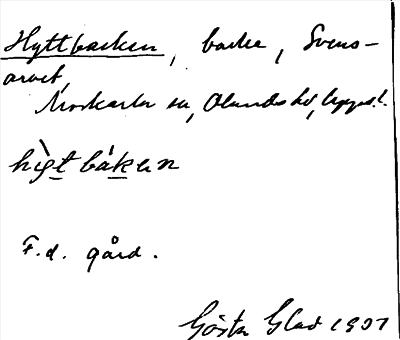 Hyttbacken, backe, Svens-
arvet,
Morkarla sn, Olands hd, Uppsl.
hỳtbákan
F.d. gård.
Gösta Glad 1931